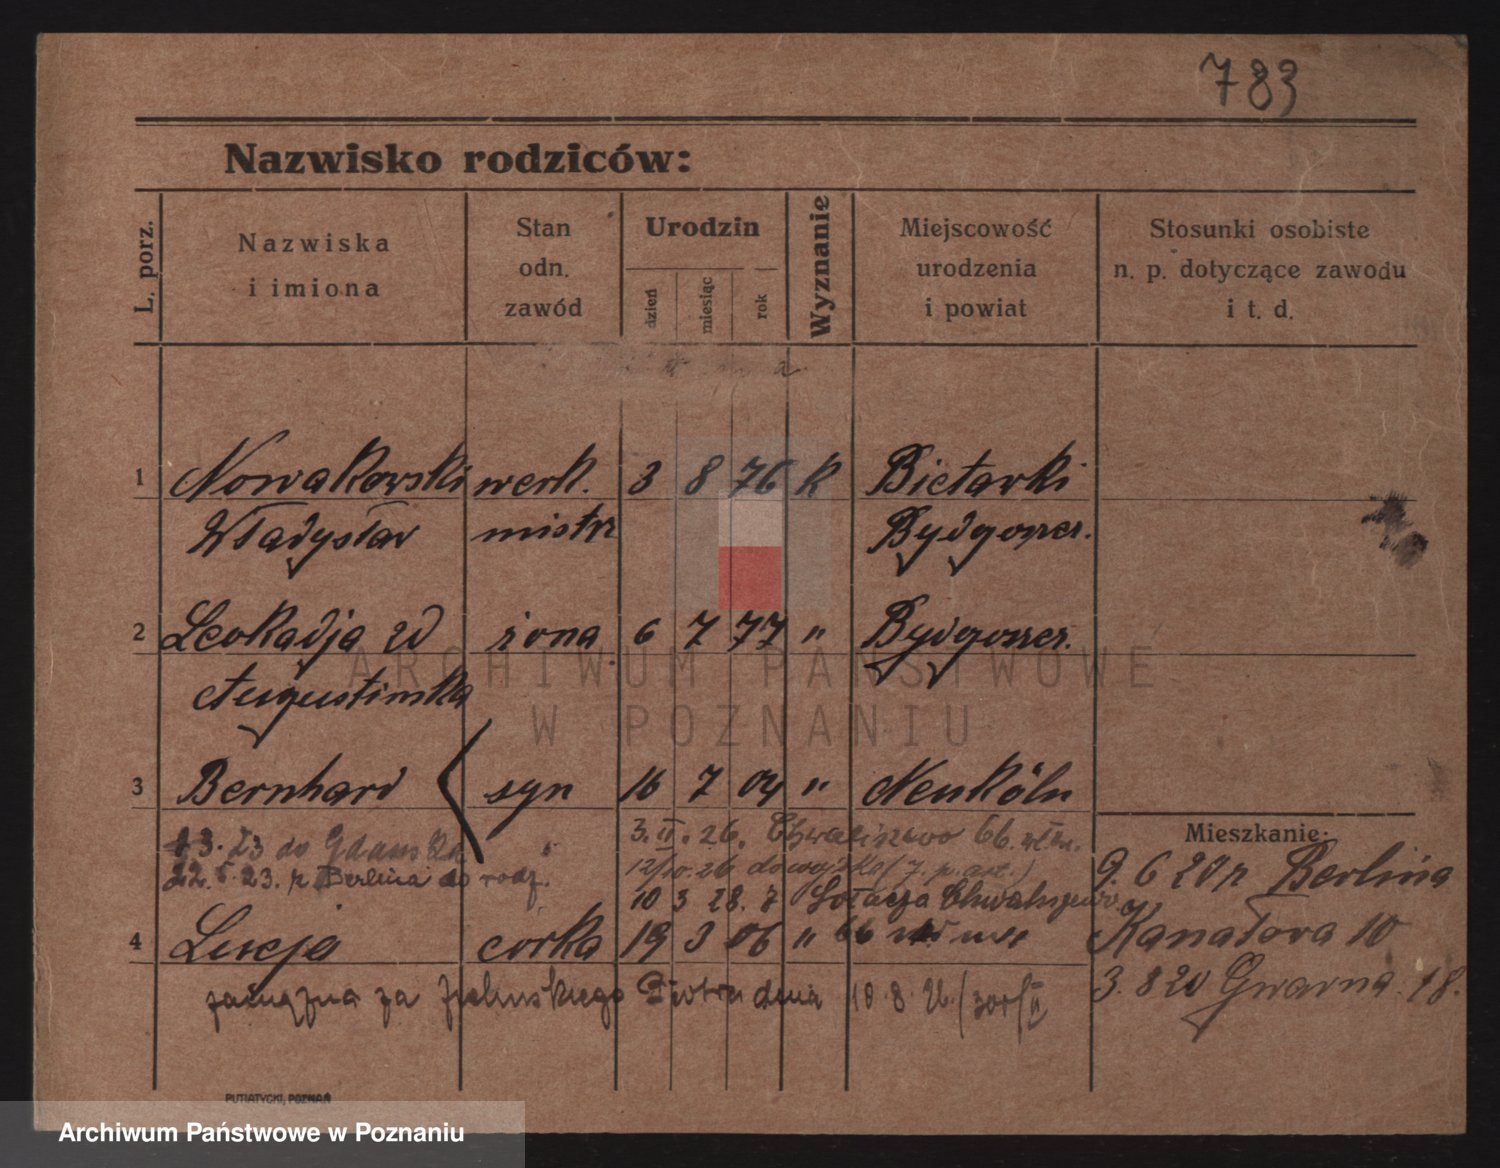 783
Nazwisko rodziców:
L. porz.
Nazwiska
i imiona
Stan
odn.
zawód
Urodzin
dzień
miesiąc
rok
Wyznanie
Miejscowość
urodzenia
i powiat
Stosunki osobiste
n. p. dotyczące zawodu
i t. d.
1 Nowakowski werk. 3 8 76 k Bietarki
Władysław mistrz Bydgoszcz.
2 Leokadja zd żona 6 7 77 " Bydgoszcz.
Augustinska
3 Bernhard syn 16 7 04 " Neukölln
3. 23 do Gdańska
22. 5. 23. z Berlina do rodz.
3. II. 26. Chwaliszewo 66.
12/10. 26 do wojska (7. p. )
10 3 28. z Chwaliszewo
4 Lucja corka 19 3 06 " 66
zamężna za Zielinskiego Piotra dnia 10. 8. 26
Mieszkanie:
9. 6 20 z Berlina
Kanałowa 10
3. 8 20 Gwarna 18.
PUTIATYCKI, POZNAŃ
ARCHIWUM PAŃSTWOWE
W POZNANIU
Archiwum Państwowe w Poznaniu